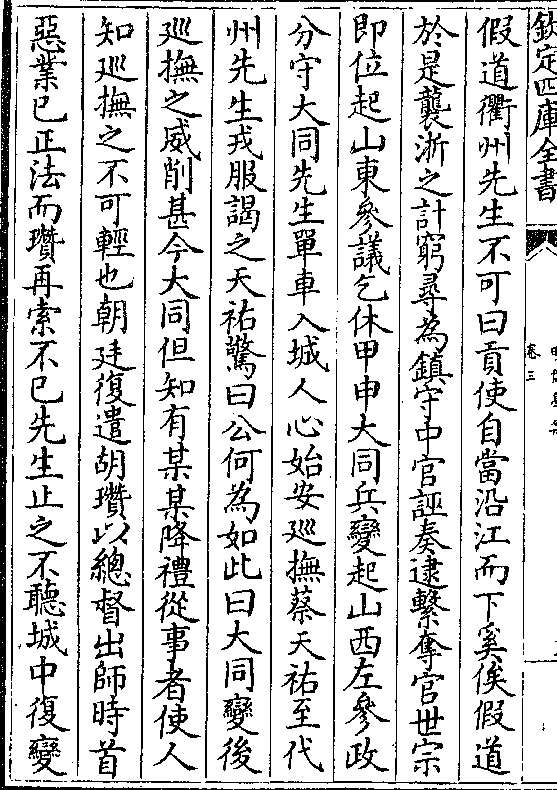 欽定四庫全書
卷三
假道衢州先生不可曰貢使自當沿江而下奚俟假道
於是襲浙之計窮尋為鎮守中官誣奏逮繫奪官世宗
即位起山東參議乞休甲申大同兵變起山西左參政
分守大同先生單車入城人心始安巡撫蔡天祐至代
州先生戎服謁之天祐驚曰公何為如此曰大同變後
巡撫之威削甚今大同但知有某某降禮從事者使人
知巡撫之不可輕也朝廷復遣胡瓚以總督出師時首
惡業已正法而瓚再索不已先生止之不聽城中復變